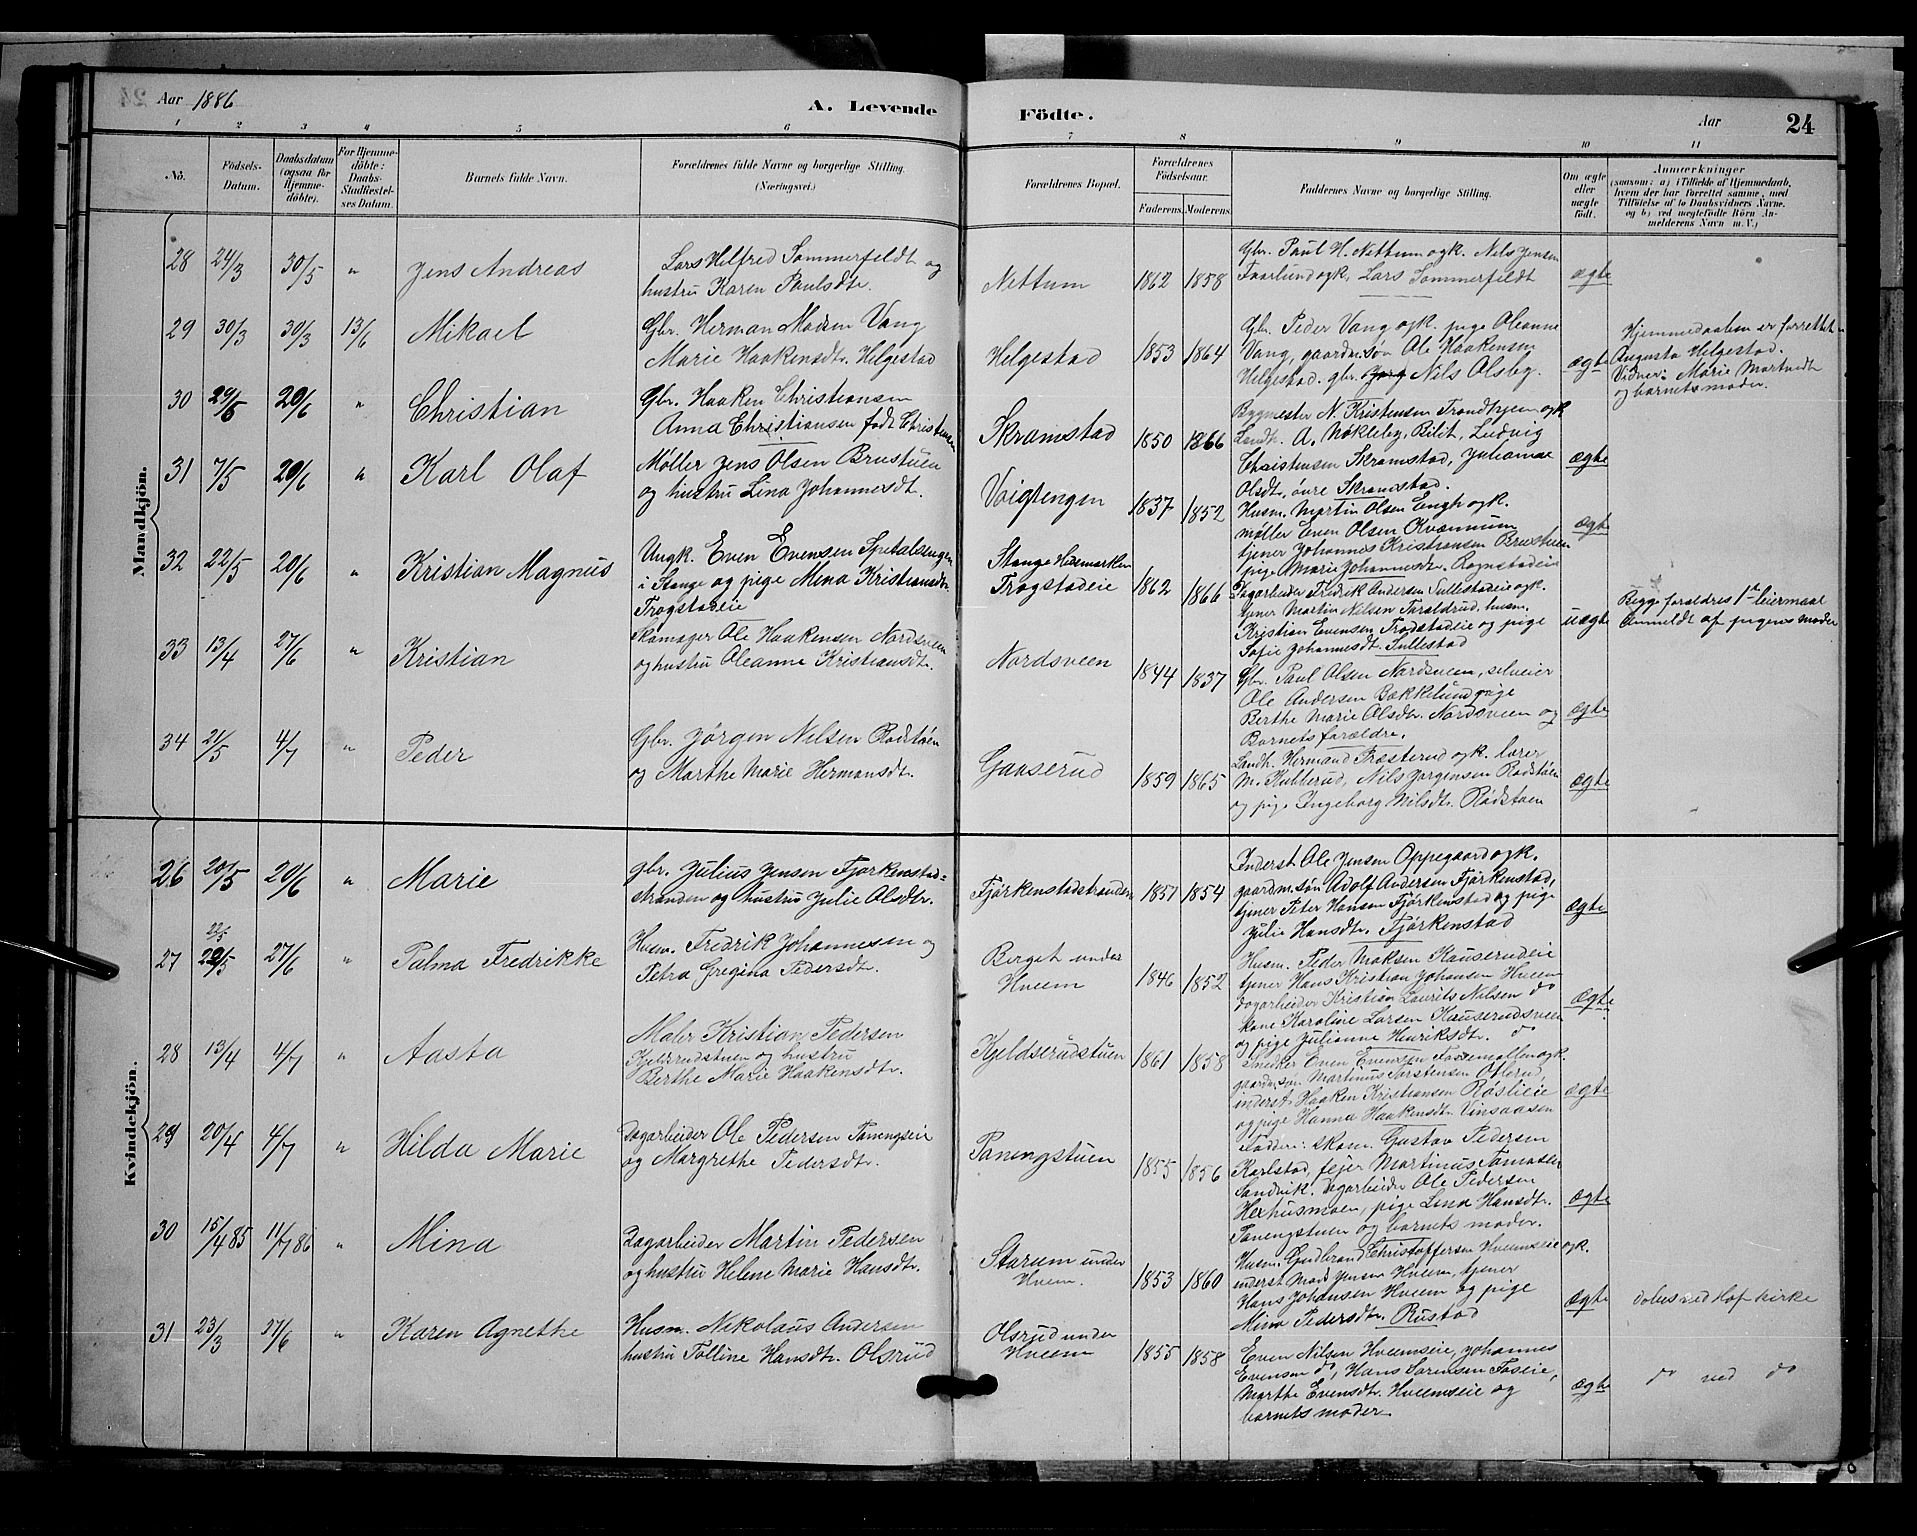 24 Aar 1886 A. Levende Födte. Aar 24
1 2 3 4 5 6 7 8 9 10 11
No.
Födsels-Datum.
Daabsdatum (ogsaa for Hjemme-döbte).
For Hjemme-döbte: Daabs-Stadfæstel-ses Datum.
Barnets fulde Navn.
Forældrenes fulde Navne og borgerlige Stilling.
(Næringsvei.)
Forældrenes Bopæl.
Forældrenes Födselsaar.
Faderens. Moderens.
Faddernes Navne og borgerlige Stilling.
Om ægte eller uægte födt.
Anmærkninger
(saasom: a) i Tilfælde af Hjemmedaab,
hvem der har forrettet samme, med
Tilföielse af to Daabsvidners Navne.
og b) ved uægtefödte Börn An-
melderens Navn m. V.)
Mandkjön.
28 24/3 30/5 " Jens Andreas
Lars Helfred Sommerfeldt og
hustru Karen Paulsdtr.
Nettum 1862 1858
Gbr. Paul H. Nettum ogk. Nils Jensen
Faarlund ogk, Lars Sommerfeldt
ægte
29 30/3 30/3 13/6 Mikael
Gbr. Herman Madsen Vang
Marie Haakensdtr. Helgestad
Helgestad 1853 1864
Gbr. Peder Vang ogk. pige Oleanne
Vang, gaardm. søn Ole Haakensen
Helgestad. gbr. Nils Alsby.
ægte
Hjemmedaaben er forrettet
Augusta Helgestad.
Vidner: Marie Martvedt
og barnets moder.
30 29/5 20/6 " Christian
Gbr. Haaken Christiansen
Anna Christiansen født Christensen
Skramstad 1850 1866
Bygmester N. Kristensen Trondhjem ogk
Landh. A. Nøkleby, Bilit, Ludvig
Christensen Skramstad, Julianne
Olsdt, övre Skramstad.
ægte
31 7/5 20/6 " Karl Olaf
Møller Jens Olsen Brustuen
og hustru Lina Johannesdt.
Voigtengen 1837 1852
Husm. Martin Olsen Engh ogk.
møller Even Olsen Kvæmnum
tjener Johannes Kristiansen Brustuen
pige Marie Johannesdt. Rognstadeie
ægte
32 22/5 20/6 " Kristian Magnus
Ungk. Even Evensen Spetalsengen
i Stange og pige Mina Kristiansdtr.
Trogstadeie
Stange Hedemarken
Trogstadeie 1862 1866
Dagarbeider Fredrik Andersen Sullestadeie ogk.
tjener Martin Nilsen Farstdrud, husm.
Kristian Evensen Trogstadeie og pige
Sofie Johannesdt. Sullestad
uægte
Begge foreldres 1ste leiermaal
Anmeldt af pigens moder
33 13/4 27/6 " Kristian
Skomager Ole Haakensen Nordsveen
og hustru Oleanne Kristiansdt.
Nordsveen 1844 1837
Gbr. Paul Olsen Nordsveen, selveier
Ole Andersen Bækkelund pige
Berthe Marie Olsdtr. Nordsveen og
Barnets forældre.
ægte
34 21/5 4/7 " Peder
Gbr. Jørgen Nelsen Rødstøen
og Marthe Marie Hermansdt.
Gaaserud 1859 1865
Landh. Hermand Præsterud ogk. lærer
M. Kubberud, Nils Jørgensen Rødstøen
og pige Ingeborg Nilsdtr. Rødstøen
ægte
Kvindekjön.
26 20/5 20/6 " Marie
gbr. Julius Jensen Fjørkenstad-
stranden og hustru Julie Olsdtr.
Fjørkenstadstranden 1851 1854
Inderst Ole Jensen Oppegaard ogk.
gaardm. søn Adolf Andersen Fjørkenstad,
tjener Peter Hansen Fjørkenstad og pige
Julie Hansdt. Fjørkenstad
ægte
22/5
27 22/5 27/6 " Palma Fredrikke
Husm. Fredrik Johannesen og
Petra Gregina Pedersdt.
Berget under
Hveem 1846 1852
Husm. Peder Maksen Hauserudeie
tjener Hans Kristian Johansen Hveem
dagarbeider Kristian Laurits Nilsen do
kone Karoline Larsen Hauserudsveen
og pige Julianne Henriksdt. do
ægte.
28 13/4 4/7 " Aasta
Maler Kristian Pedersen
Kjeldserudstuen og hustru
Berthe Marie Haakensdtr.
Kjeldserudstuen 1861 1858
Snedker Even Evensen Fossemøllen ogk
gaardm. søn Martinus Torstensen Oterud,
inderst Haaken Kristiansen Røslieie
og pige Hanna Haakensdt. Vinsaasen
ægte
29 20/4 4/7 " Hilda Marie
Dagarbeider Ole Pedersen Panengseie
og Margrethe Pedersdt.
Panengstuen 1855 1856
Faddere: skom. Gustav Pedersen
Karlstad, fejer Martinus Tomassen
Sandvik. Dagarbeider Ole Pedersen
Hexhusmoen, pige Lina Hansdt.
Panengstuen og barnets moder.
ægte
30 15/4 85 11/7 86 " Mina
Dagarbeider Martin Pedersen
og hustru Helene Marie Hansdt.
Starum under
Hveem. 1853 1860
Husm. Gudbrand Christoffersen Hveemseie ogk.
inderst Mads Jensen Hveem, tjener
Hans Johansen Hveem og pige
Mina Pedersdt. Rustad
ægte
døbes ved Hof kirke
31 23/3 27/6 " Karen Agnethe
Husm. Nikolaus Andersen
hustru Folline Hansdt. Olsrud
Olsrud under
Hveem 1855 1858
Even Nilsen Hveemseie, Johannes
Evensen do, Hans Sorensen Foseie,
Marthe Evensdt. Hveemseie og
barnets moder
ægte
do ved do